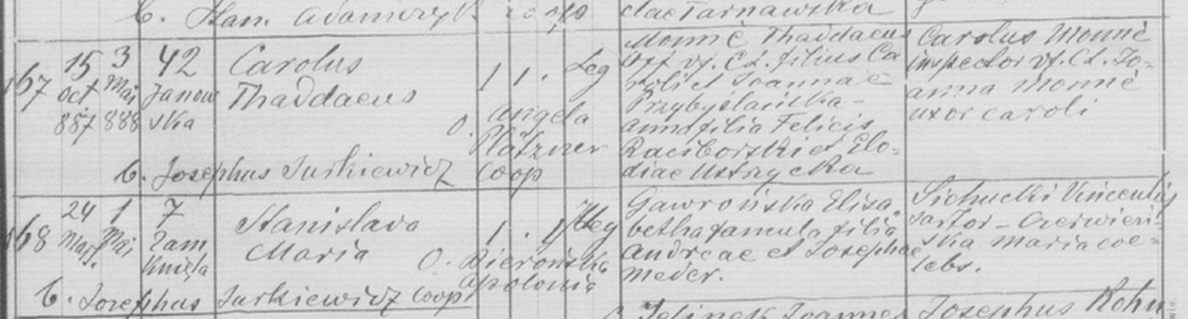 b. Stan. Adamczyk coop
clae Tarnawska
167
15 oct 887
3 Maj 888
42 Janowska
Carolus
Thaddaeus
1 1. Leg
o. Angela
Plätzner
coop
b. Josephus Jurkiewicz
Monné Thaddaeus
off. vf. CL. filius Ca
roli et Joannae
Przybyslańska -
anna filia Felicis
Raciborski et Elo-
diae Ustrzycka
Carolus Monné
inspector vf. CL. Jo-
anna Monné
uxor caroli
168
24 Mart.
1 Maj
7 Zam
knięta
Stanislava
Maria
1. 1 Illeg
O. Bierońska
Apolonia
b. Josephus Jurkiewicz coop
Gawrońska Elisa
betha famula filia
Andreae et Josephae
Meder.
Sichucki Vincentius
sartor - Czerwień-
ska Maria coe-
lebs.
Jelinek Joannes
Josephus Kohn